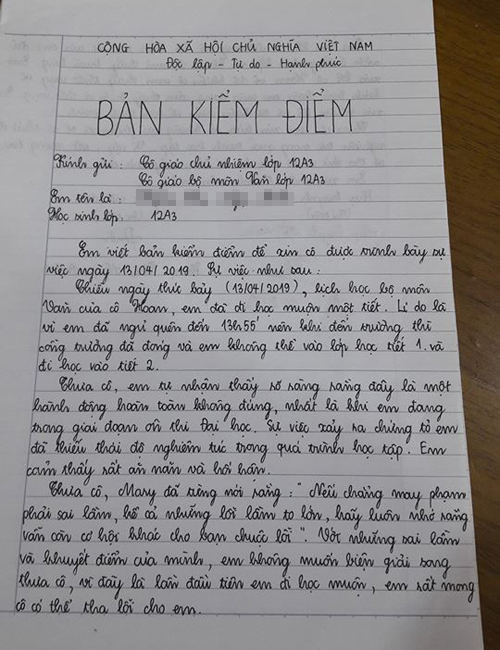 CỘNG HÒA XÃ HỘI CHỦ NGHĨA VIỆT NAM
Độc lập - Tự do - Hạnh phúc
BẢN KIỂM ĐIỂM
Kính gửi : Cô giáo chủ nhiệm lớp 12A3
Cô giáo bộ môn Văn lớp 12A3
Em tên là :
Học sinh lớp : 12A3
Em viết bản kiểm điểm để xin cô được trình bày sự
việc ngày 13/04/2019. Sự việc như sau :
Chiều ngày thứ bảy (13/04/2019), lịch học bộ môn
Văn của cô Hoan, em đã đi học muộn một tiết. Lí do là
vì em đã ngủ quên đến 13h55' nên khi đến trường thì
cổng trường đã đóng và em không thể vào lớp học tiết 1 và
đi học vào tiết 2.
Thưa cô, em tự nhận thấy rõ ràng rằng đây là một
hành động hoàn toàn không đúng, nhất là khi em đang
trong giai đoạn ôn thi Đại học. Sự việc xảy ra chứng tỏ em
đã thiếu thái độ nghiêm túc trong quá trình học tập. Em
cảm thấy rất ăn năn và hối hận.
Thưa cô, Mary đã từng nói rằng : " Nếu chẳng may phạm
phải sai lầm, kể cả những lỗi lầm to lớn, hãy luôn nhớ rằng
vẫn còn cơ hội khác cho bạn chuộc lỗi ". Với những sai lầm
và khuyết điểm của mình, em không muốn biện giải song
thưa cô, vì đây là lần đầu tiên em đi học muộn, em rất mong
cô có thể tha lỗi cho em.